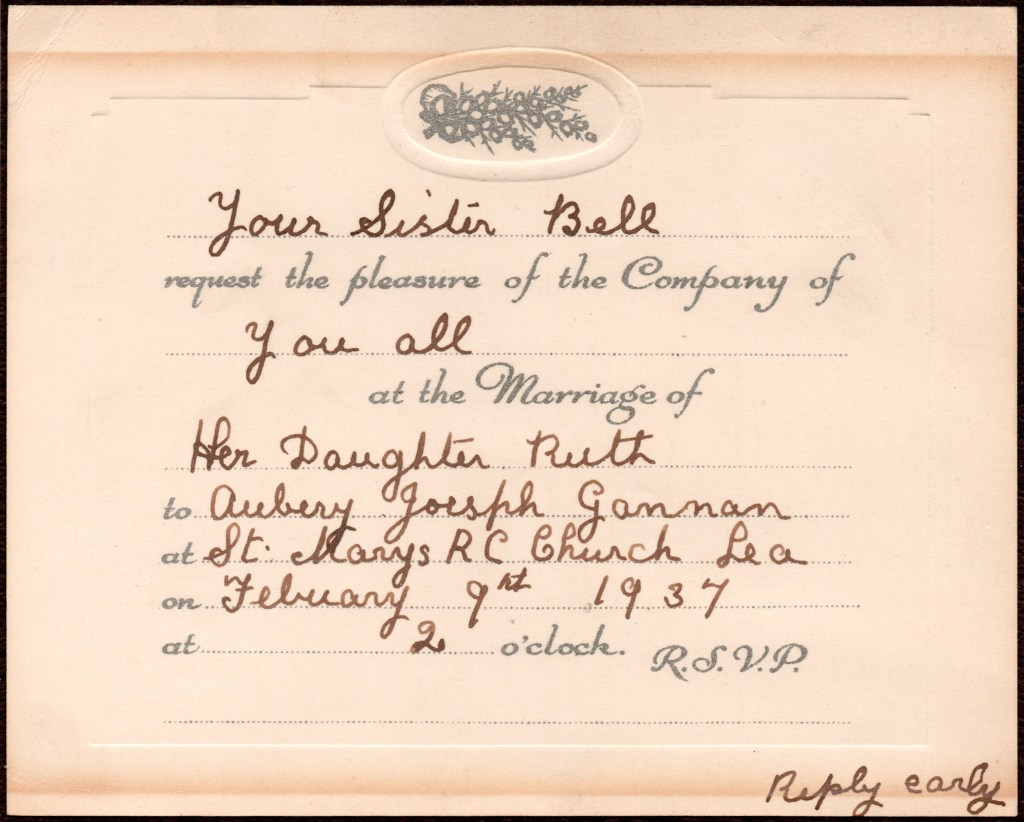 Your Sister Bell
request the pleasure of the Company of
You all
at the Marriage of
Her Daughter Ruth
to Aubery Joesph Gannan
at St. Marys R C Church Lea
on Febuary 9ht 1937
at 2 o'clock. R.S.V.P.
Reply early